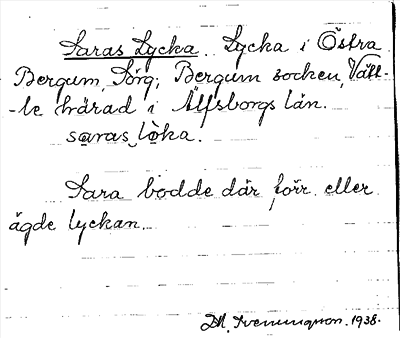 Saras Lycka. Lycka i Östra
Bergum, Sörg; Bergum socken, Vätt-
-le härad i Älfsborgs län.
saras lòka.
Sara bodde där förr eller
ägde lyckan.
1938.